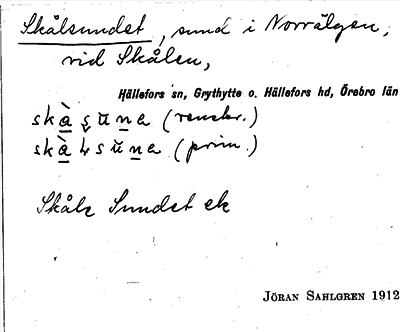 Skålsundet, sund i Norrälgen,
vid Skålen,
Hällefors sn, Grythytte o. Hällefors hd, Örebro län
(renskr.)
(prim.)
Skåls Sundet ek
JÖRAN SAHLGREN 1912